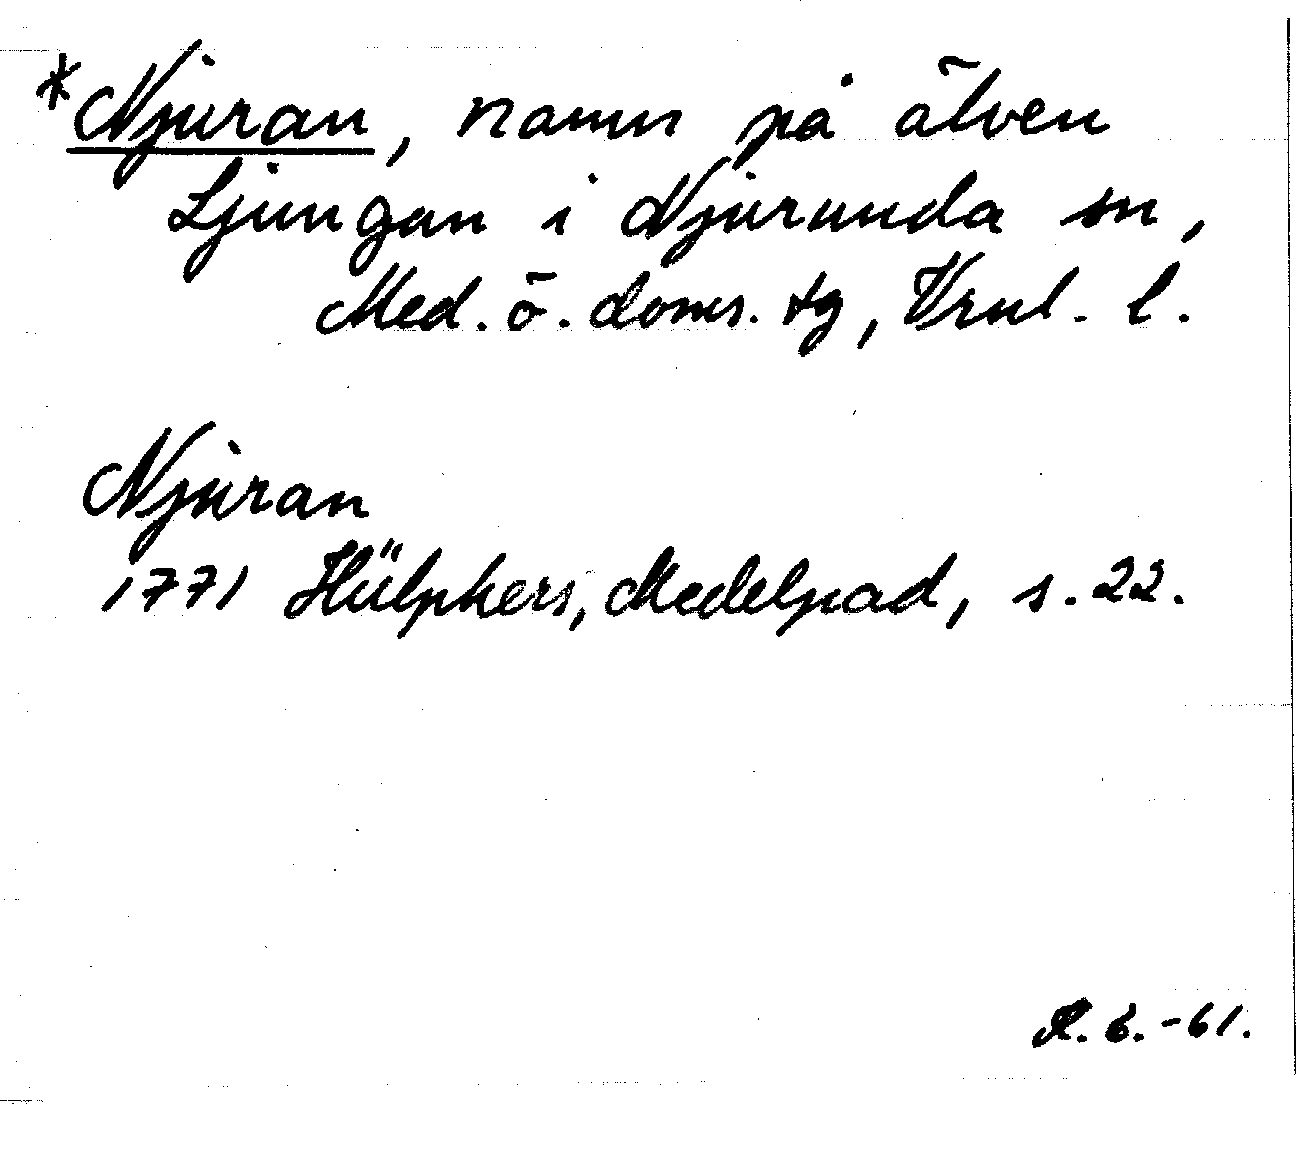 *Njuran, namn på älven
Ljungan i Njurunda sn,
Med. ö. doms. tg, Vrnl. l.
Njuran
1771 Hülphers, Medelpad, s. 22.
R. 6. -61.